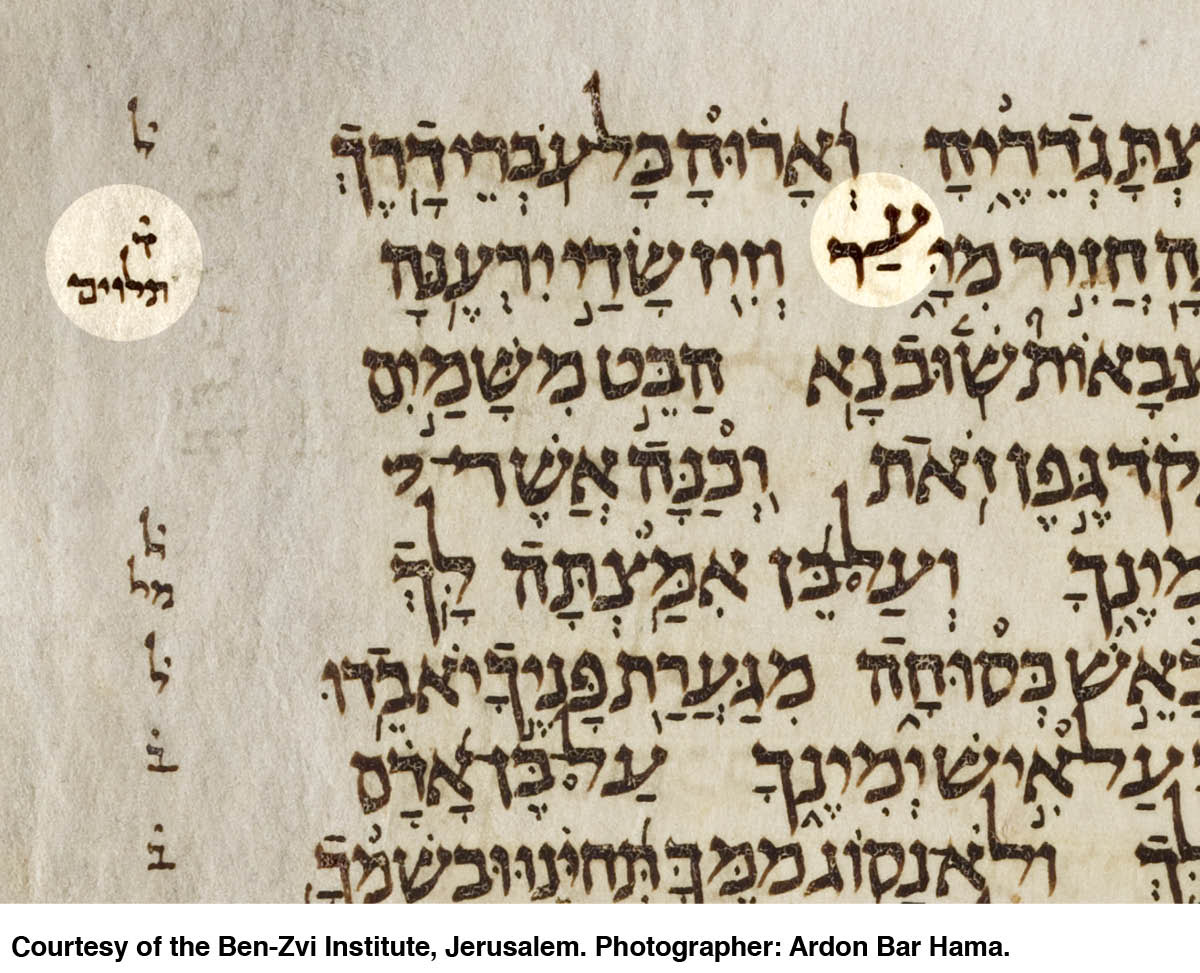 צְתָּ גְדֵרֶיהָ וְאָרוּהָ כָּל עֹבְרֵי דָרֶךְ
ל
ָּה חֲזִיר מִיָּעַר וְזִיז שָׂדַי יִרְעֶנָּה
ד
תלוים
צְבָאוֹת שׁוּב נָא הַבֵּט מִשָּׁמַיִם
קֹד גֶּפֶן זֹאת וְכַנָּה אֲשֶׁר
מִינֶךָ וְעַל בֵּן אִמַּצְתָּה לָּךְ
ל
מל
בָאֵשׁ כְּסוּחָה מִגַּעֲרַת פָּנֶיךָ יֹאבֵדוּ
ל
עַל אִישׁ יְמִינֶךָ עַל בֶּן אָדָם
ב
לָּךְ וְלֹא נָסוֹג מִמֶּךָּ תְּחַיֵּנוּ וּבְשִׁמְךָ
ב
Courtesy of the Ben-Zvi Institute, Jerusalem. Photographer: Ardon Bar Hama.